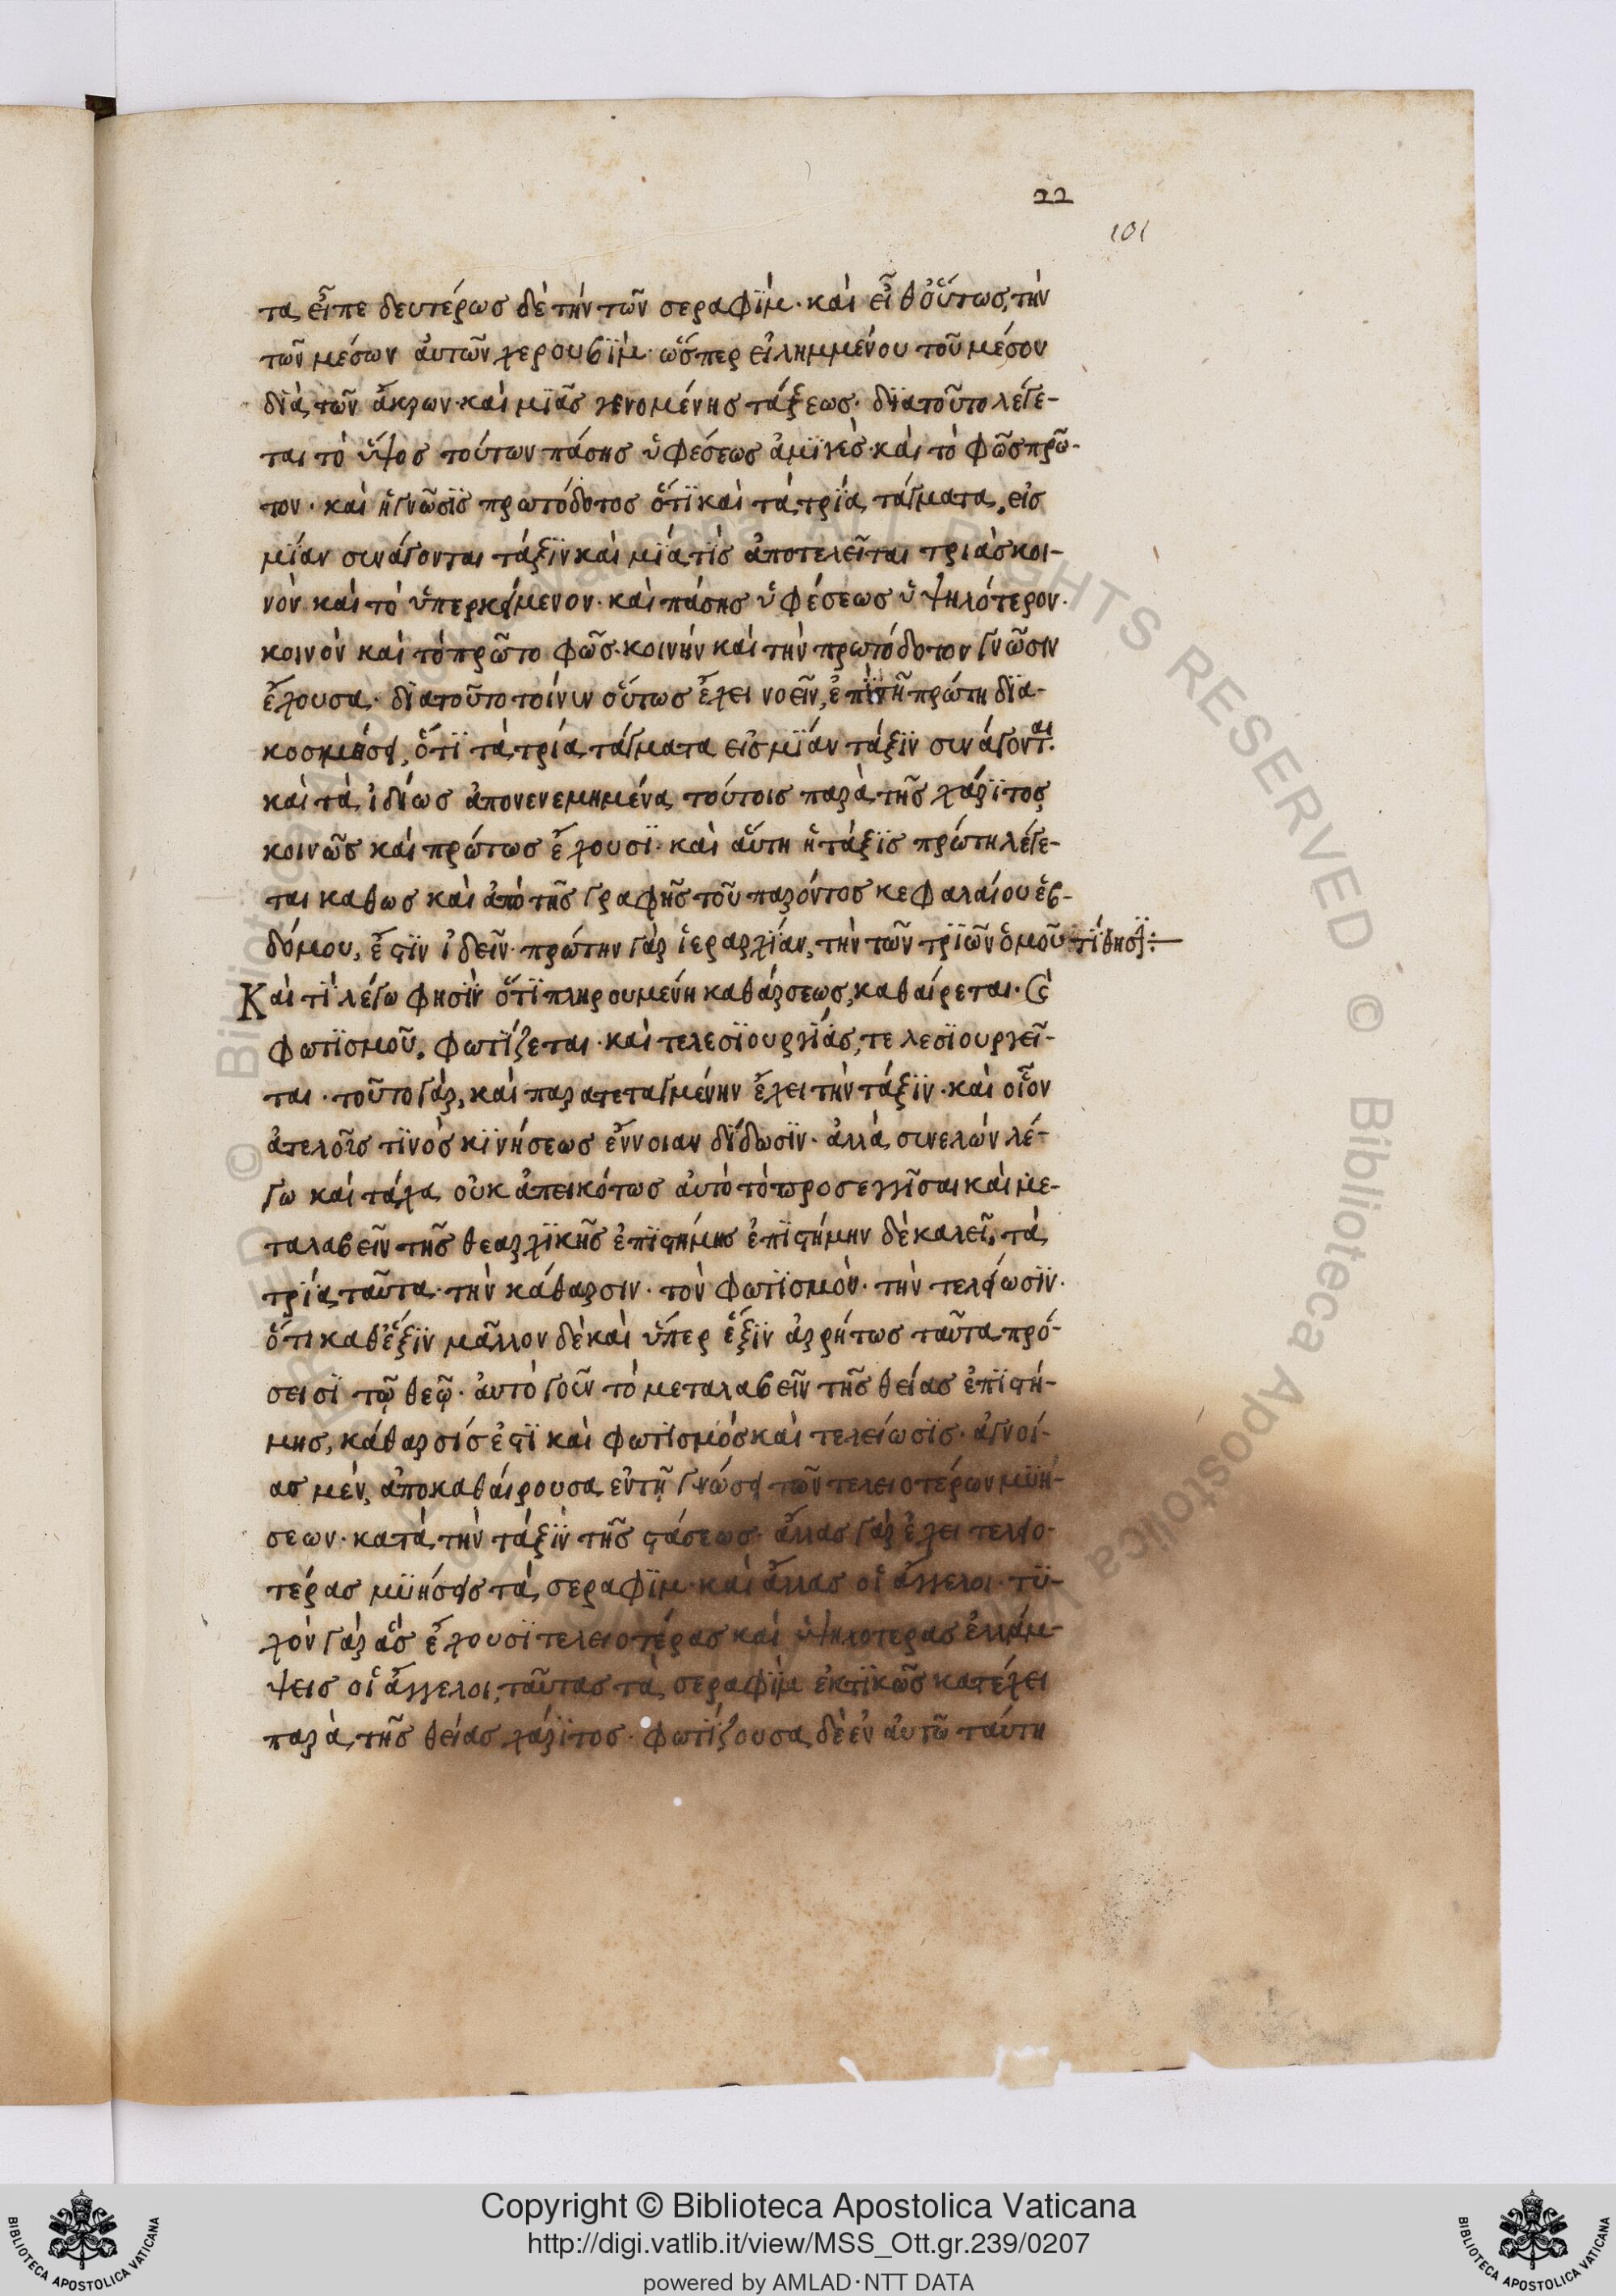 22
101
τα, εἶπε δευτέρως δὲ τὴν τῶν σεραφὶμ· καὶ εἶθ οὕτως, τὴν
τῶν μέσων ἀυτῶν χερουβὶμ· ὥσπερ εἰλημμένου τοῦ μέσον
διὰ τῶν ἄκρων· καὶ μιᾶς γενομένης τάξεως· διατοῦτο λέγε-
ται τὸ ὕψος τούτων πάσης ὑφέσεως ἀμιγὲς· καὶ τὸ φῶς πρῶ-
τον· καὶ ἡ γνῶσϊς πρωτόδοτος ὅτϊ καὶ τὰ τρία τάγματα, εἰς
μίαν συνάγονται τάξϊν καὶ μία τὶς ἀποτελεῖται τριὰς κοι-
νὸν καὶ τὸ ὑπερκείμενον· καὶ πάσης ὑφέσεως ὑψηλότερον·
κοινὸν καὶ τὸ πρῶτο φῶς· κοινὴν καὶ τὴν πρωτόδοτον γνῶσιν
ἔχουσα· διατοῦτο τοίνυν οὕτως ἔχει νοεῖν, ἐπὶ τῆ πρώτη δϊα-
κοσμήσει, ὅτϊ τὰ τρία τάγματα εἰς μϊάν τάξϊν συνάγονται·
καὶ τὰ ἰδίως ἀπονενεμημένα τούτοις παρὰ τῆς χάρϊτος
κοινῶς καὶ πρώτως ἔχουσϊ· καὶ αὕτη ἡ τάξϊς πρώτη λέγε-
ται καθως καὶ ἀπὸ τῆς γραφῆς τοῦ παρόντος κεφαλαίου ἑβ-
δόμου, ἔστϊν ἰδεῖν· πρώτην γὰρ ἱεραρχίαν, τὴν τῶν τρϊῶν ὁμοῦ τίθησϊ:—
Καὶ τὶ λέγω φησὶν ὅτϊ πληρουμένη καθάρσεως, καθαίρεται· καὶ
φωτϊσμοῦ, φωτΐζεται· καὶ τελεσϊουργίας, τελεσϊουργεῖ-
ται· τοῦτο γὰρ, καὶ παρατεταγμένην ἔχει τὴν τάξϊν· καὶ οἷον
ἀτελοῖς τϊνὸς κϊνήσεως ἔννοιαν δίδωσϊν· ἀλλὰ συνελὼν λέ-
γω καὶ τάχα οὐκ ἀπεικότως ἀυτὸ τὸ προσεγγῖσαι καὶ με-
ταλαβεῖν τῆς θεαρχϊκῆς ἐπϊστήμης ἐπϊστήμην δὲ καλεῖ, τὰ
τρία ταῦτα· τὴν κάθαρσιν· τὸν φωτϊσμὸν· τὴν τελείωσϊν·
ὅτι καθ ἕξϊν μᾶλλον δὲ καὶ ὑπερ ἕξϊν ἀρρήτως ταῦτα πρό-
σεισϊ τῷ θεῷ· ἀυτὸ γοῦν τὸ μεταλαβεῖν τῆς θείας ἐπϊστή-
μης, κάθαρσίς ἐστϊ καὶ φωτϊσμὸς καὶ τελείωσϊς· ἀγνοί-
ας μὲν, ἀποκαθαίρουσα ἐν τῇ γνώσει τῶν τελειοτέρων μϋή-
σεων· κατὰ τὴν τάξϊν τῆς στάσεως· ἄλλας γὰρ ἔχει τελειο-
τέρας μϋήσεις τὰ σεραφϊμ· καὶ ἄλλας οἱ ἄγγελοι· τϋ-
χὸν γὰρ ἃς ἔχουσϊ τελειοτέρας καὶ ὑψηλοτερας ἐλλάμ-
ψεις οἱ ἄγγελοι, ταῦτας τὰ σεραφὶμ ἑκτϊκῶς κατέχει
παρὰ τῆς θείας χάρϊτος· φωτίζουσα δὲ ἐν ἀυτῶ ταύτη
Copyright © Biblioteca Apostolica Vaticana
http://digi.vatlib.it/view/MSS_Ott.gr.239/0207
powered by AMLAD·NTT DATA